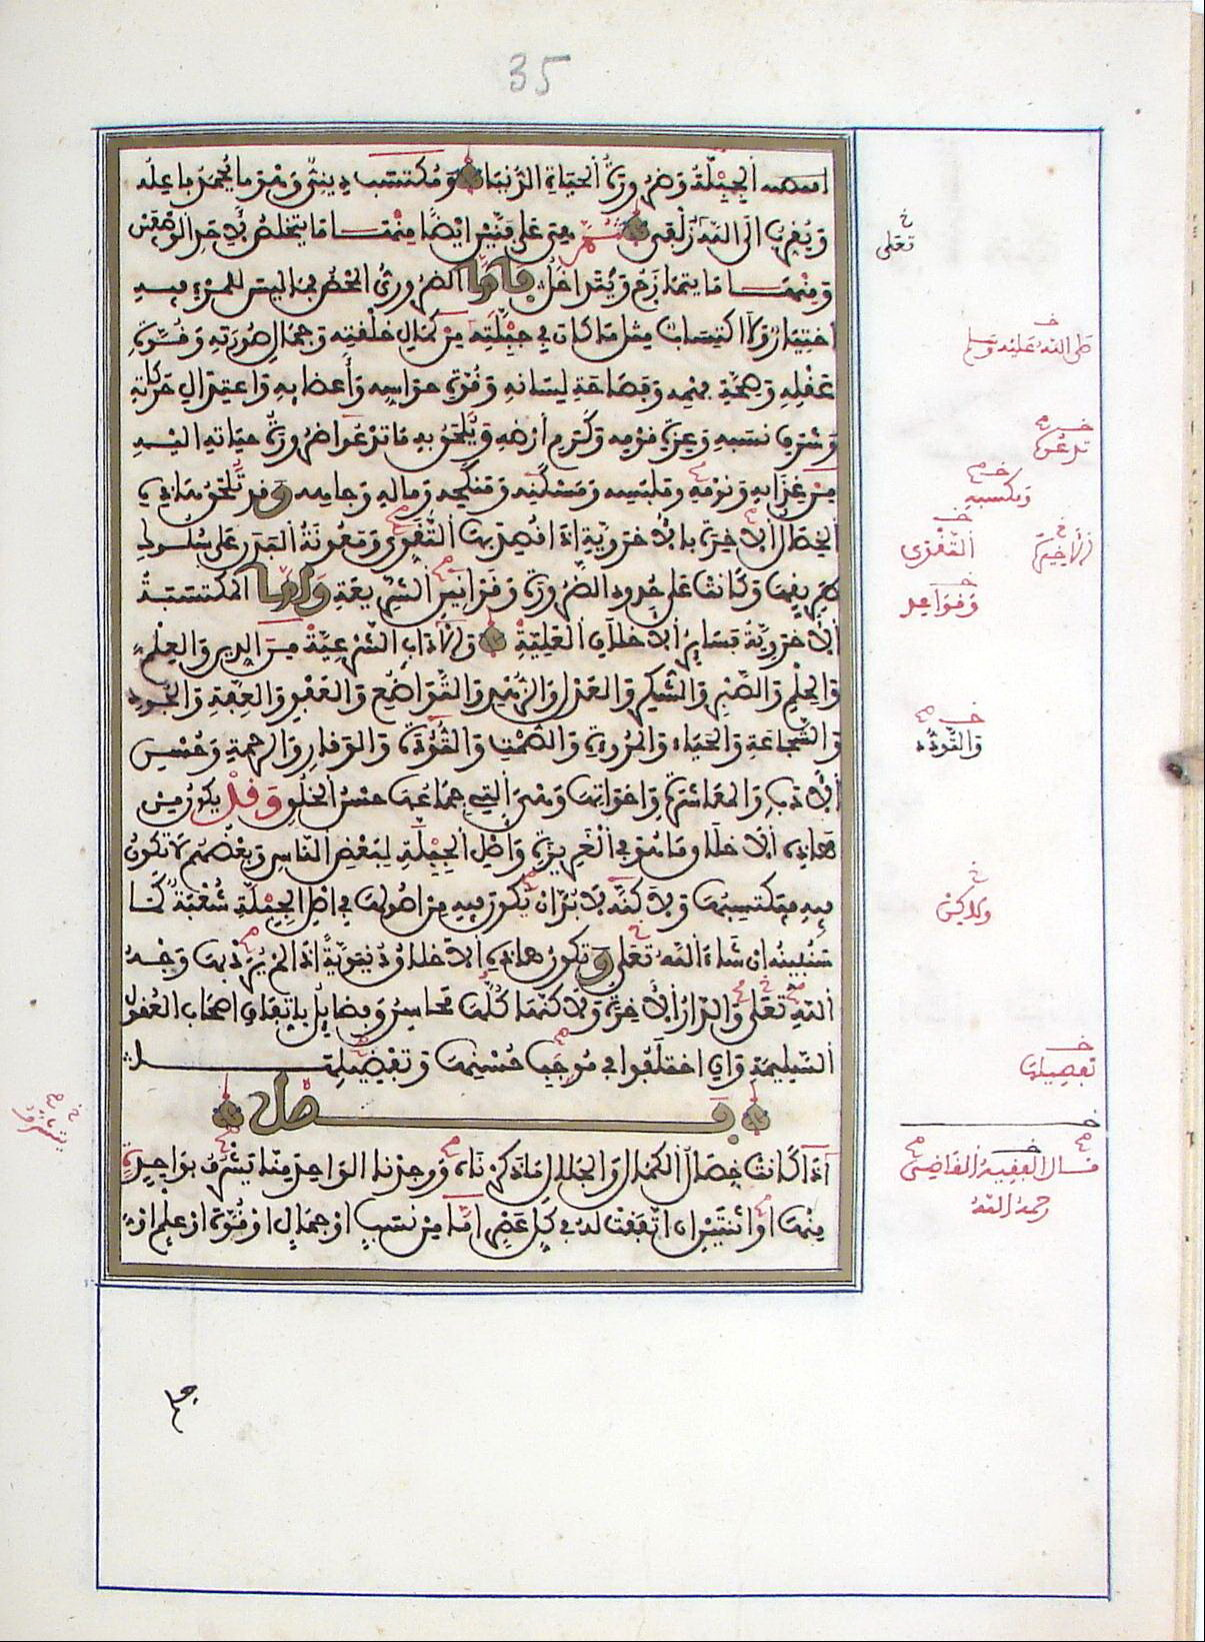 35
اقتضته الجبلة وضرورة الحياة الدنيا ومكتسب ديني وهو ما يحمد فاعله
ويقرب الى الله زلفى ثم هي على فنين ايضا منها ما يتخلص لاحد الوصفين
ومنها ما يتمازج ويتداخل فاما الضروري المحض فما ليس للمرء فيه
اختيار ولا اكتساب مثل ما كان في جبلته من كمال خلقته وجمال صورته وقوة
عقله وصحة فهمه وفصاحة لسانه وقوة حواسه وأعضائه واعتدال حركاته
وشرف نسبه وعزة قومه وكرم أرضه ويلحق به ما تدعو ضرورة حياته اليه
من غذائه ونومه وملبسه ومسكنه ومنكحه وماله وجاهه وقد تلحق هاذه
الخصال الاخرة بالاخروية اذا قصد بها التقوى ومعونة البدن على سلوك
طريقها وكانت على حدود الضرورة وقوانين الشريعة وأما المكتسبة
الاخروية فسائر الاخلاق العلية والآداب الشرعية من الدين والعلم
والحلم والصبر والشكر والعدل والزهد والتواضع والعفو والعفة والجود
والشجاعة والحياء والمروة والصمت والتؤدة والوقار والرحمة وحسن
الادب والمعاشرة واخواتها وهي التي جماعها حسن الخلق وقد يكون من
هاذه الاخلاق ما هو في الغريزة واصل الجبلة لبعض الناس وبعضهم لا تكون
فيه فيكتسبها ولاكنه لا بد ان يكون فيه من اصولها في اصل الجبلة شعبة كما
سنبينه ان شاء الله تعلى وتكون هاذه الاخلاق دنيوية اذا لم يرد بها وجه
الله تعلى والدار الاخرة ولاكنها كلها محاسن وفضائل باتفاق اصحاب العقول
السليمة وان اختلفوا في موجب حسنها وتفضيلها
فصل
اذا كانت خصال الكمال والجلال ما ذكرناه ووجدنا الواحد منا يشرف بواحدة
منها او اثنتين ان اتفقت له في كل عصر اما من نسب او جمال او قوة او علم او
خ
تعلى
خ
صلى الله عليه وسلم
خ
خ
ويكسبه
خ
التقوى
خ
وقواعد
خ
والتودد
خ
ولاكن
خ
تفصيلها
خ
قال الفقيه القاضي
رحمه الله